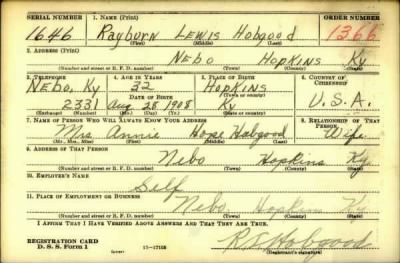 SERIAL NUMBER 1. NAME (Print) ORDER NUMBER
1646 Rayburn Lewis Hobgood 1366
(First) (Middle) (Last)
2. ADDRESS (Print)
Nebo Hopkins Ky
(Number and street or R. F. D. number) (Town) (County) (State)
3. TELEPHONE 4. AGE IN YEARS 5. PLACE OF BIRTH 6. COUNTRY OF CITIZENSHIP
Nebo, Ky 32 Hopkins
DATE OF BIRTH (Town or county)
2331 Aug 28 1908 Ky U.S.A.
(Exchange) (Number) (Mo.) (Day) (Yr.) (State or country)
7. NAME OF PERSON WHO WILL ALWAYS KNOW YOUR ADDRESS 8. RELATIONSHIP OF THAT PERSON
Mrs Annie Hope Hobgood Wife
(Mr., Mrs., Miss) (First) (Middle) (Last)
9. ADDRESS OF THAT PERSON
Nebo Hopkins Ky
(Number and street or R. F. D. number) (Town) (County) (State)
10. EMPLOYER'S NAME
Self
11. PLACE OF EMPLOYMENT OR BUSINESS
Nebo Hopkins Ky
(Number and street or R. F. D. number) (Town) (County) (State)
I AFFIRM THAT I HAVE VERIFIED ABOVE ANSWERS AND THAT THEY ARE TRUE.
REGISTRATION CARD
D. S. S. Form 1 (Registrant's signature)